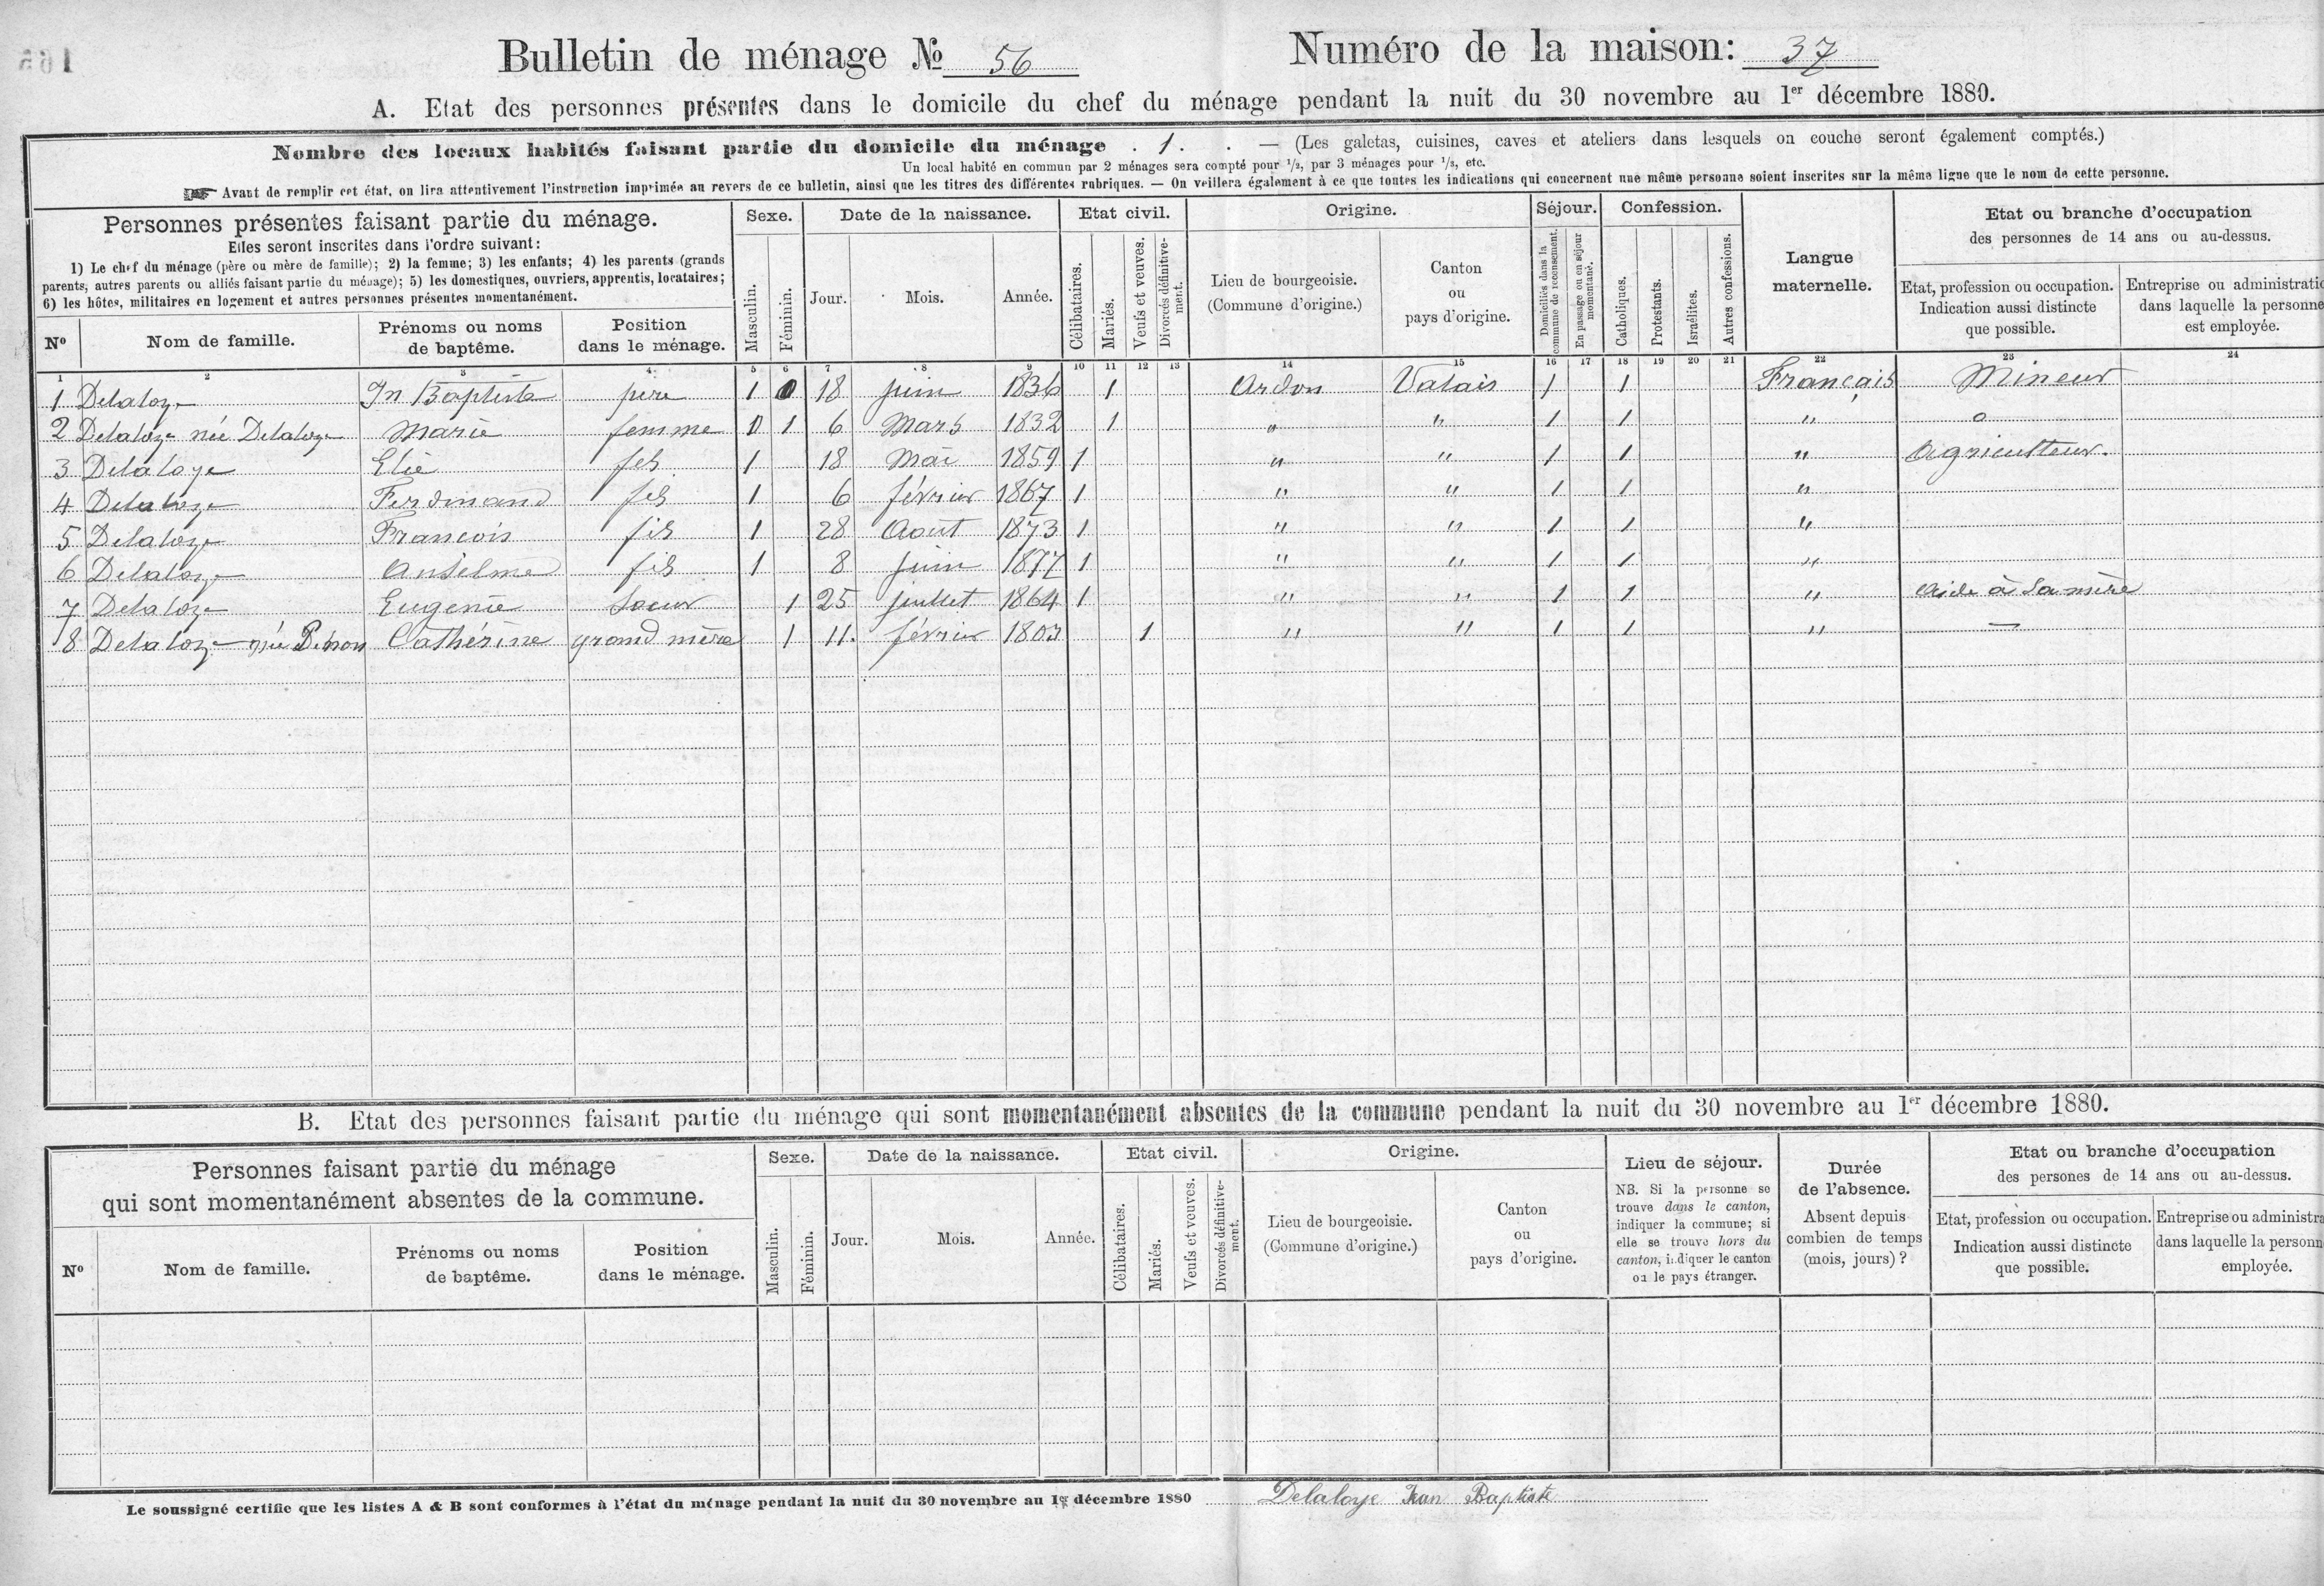 Bulletin de ménage № 56
Numéro de la maison: 37
A. Etat des personnes présentes dans le domicile du chef du ménage pendant la nuit du 30 novembre au 1er décembre 1880.
Nombre des locaux habités faisant partie du domicile du ménage . 1 . . — (Les galetas, cuisines, caves et ateliers dans lesquels on couche seront également comptés.)
Un local habité en commun par 2 ménages sera compté pour 1/2, par 3 ménages pour 1/3, etc.
Avant de remplir cet état, on lira attentivement l'instruction imprimée au revers de ce bulletin, ainsi que les titres des différentes rubriques. — On veillera également à ce que toutes les indications qui concernent une même personne soient inscrites sur la même ligne que le nom de cette personne.
Personnes présentes faisant partie du ménage.
Elles seront inscrites dans l'ordre suivant:
1) Le chef du ménage (père ou mère de famille); 2) la femme; 3) les enfants; 4) les parents (grands
parents, autres parents ou alliés faisant partie du ménage); 5) les domestiques, ouvriers, apprentis, locataires;
6) les hôtes, militaires en logement et autres personnes présentes momentanément.
Nº
Nom de famille.
Prénoms ou noms
de baptême.
Position
dans le ménage.
Sexe.
Masculin.
Féminin.
Date de la naissance.
Jour.
Mois.
Année.
Etat civil.
Célibataires.
Mariés.
Veufs et veuves.
Divorcés définitive-
ment.
Origine.
Lieu de bourgeoisie.
(Commune d'origine.)
Canton
ou
pays d'origine.
Séjour.
Domiciliés dans la
commune de recensement.
En passage ou en séjour
momentané.
Confession.
Catholiques.
Protestants.
Israélites.
Autres confessions.
Langue
maternelle.
Etat ou branche d'occupation
des personnes de 14 ans ou au-dessus.
Etat, profession ou occupation.
Indication aussi distincte
que possible.
Entreprise ou administratio
dans laquelle la personne
est employée.
1 2 3 4 5 6 7 8 9 10 11 12 13 14 15 16 17 18 19 20 21 22 23 24
1 Delaloye Jn Baptiste père 1 0 18 juin 1836 1 Ardon Valais 1 1 Français Mineur
2 Delaloye née Delaloye Marie femme 0 1 6 Mars 1832 1 " " 1 1 " o
3 Delaloye Elie fils 1 18 Mai 1859 1 " " 1 1 " Agriculteur.
4 Delaloye Ferdinand fils 1 6 février 1867 1 " " 1 1 "
5 Delaloye Francois fils 1 28 Aout 1873 1 " " 1 1 "
6 Delaloye Anselme fils 1 8 juin 1877 1 " " 1 1 "
7 Delaloye Eugenie Soeur 1 25 juillet 1864 1 " " 1 1 " Aide à sa mère
8 Delaloye née Cathérine grand mère 1 11. février 1803 1 " " 1 1 " —
B. Etat des personnes faisant partie du ménage qui sont momentanément absentes de la commune pendant la nuit du 30 novembre au 1er décembre 1880.
Personnes faisant partie du ménage
qui sont momentanément absentes de la commune.
Nº
Nom de famille.
Prénoms ou noms
de baptême.
Position
dans le ménage.
Sexe.
Masculin.
Féminin.
Date de la naissance.
Jour.
Mois.
Année.
Etat civil.
Célibataires.
Mariés.
Veufs et veuves.
Divorcés définitive-
ment.
Origine.
Lieu de bourgeoisie.
(Commune d'origine.)
Canton
ou
pays d'origine.
Lieu de séjour.
NB. Si la personne se
trouve dans le canton,
indiquer la commune; si
elle se trouve hors du
canton, indiquer le canton
ou le pays étranger.
Durée
de l'absence.
Absent depuis
combien de temps
(mois, jours)?
Etat ou branche d'occupation
des persones de 14 ans ou au-dessus.
Etat, profession ou occupation.
Indication aussi distincte
que possible.
Entreprise ou administra
dans laquelle la personn
employée.
Le soussigné certifie que les listes A & B sont conformes à l'état du ménage pendant la nuit du 30 novembre au 1er décembre 1880 Delaloye Jean Baptiste